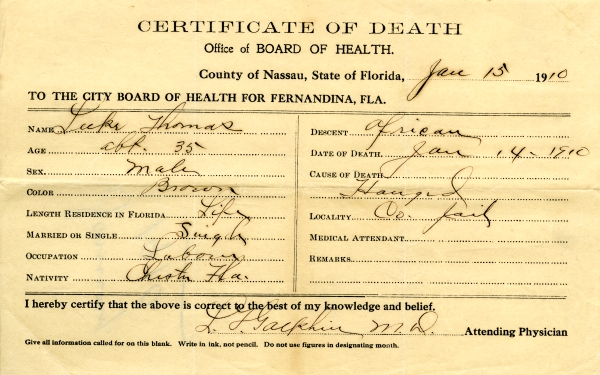 CERTIFICATE OF DEATH
Office of BOARD OF HEALTH.
County of Nassau, State of Florida, Jan 15 1910
TO THE CITY BOARD OF HEALTH FOR FERNANDINA, FLA.
NAME Luke Thomas
AGE abt. 35
SEX. Male
COLOR Brown
LENGTH RESIDENCE IN FLORIDA Life
MARRIED OR SINGLE Single
OCCUPATION Labour
NATIVITY Chester Fla.
DESCENT African
DATE OF DEATH Jan 14 - 1910
CAUSE OF DEATH
Hanged
LOCALITY Co. Jail
MEDICAL ATTENDANT
REMARKS
I hereby certify that the above is correct to the best of my knowledge and belief.
M.D. Attending Physician
Give all information called for on this blank. Write in ink, not pencil. Do not use figures in designating month.